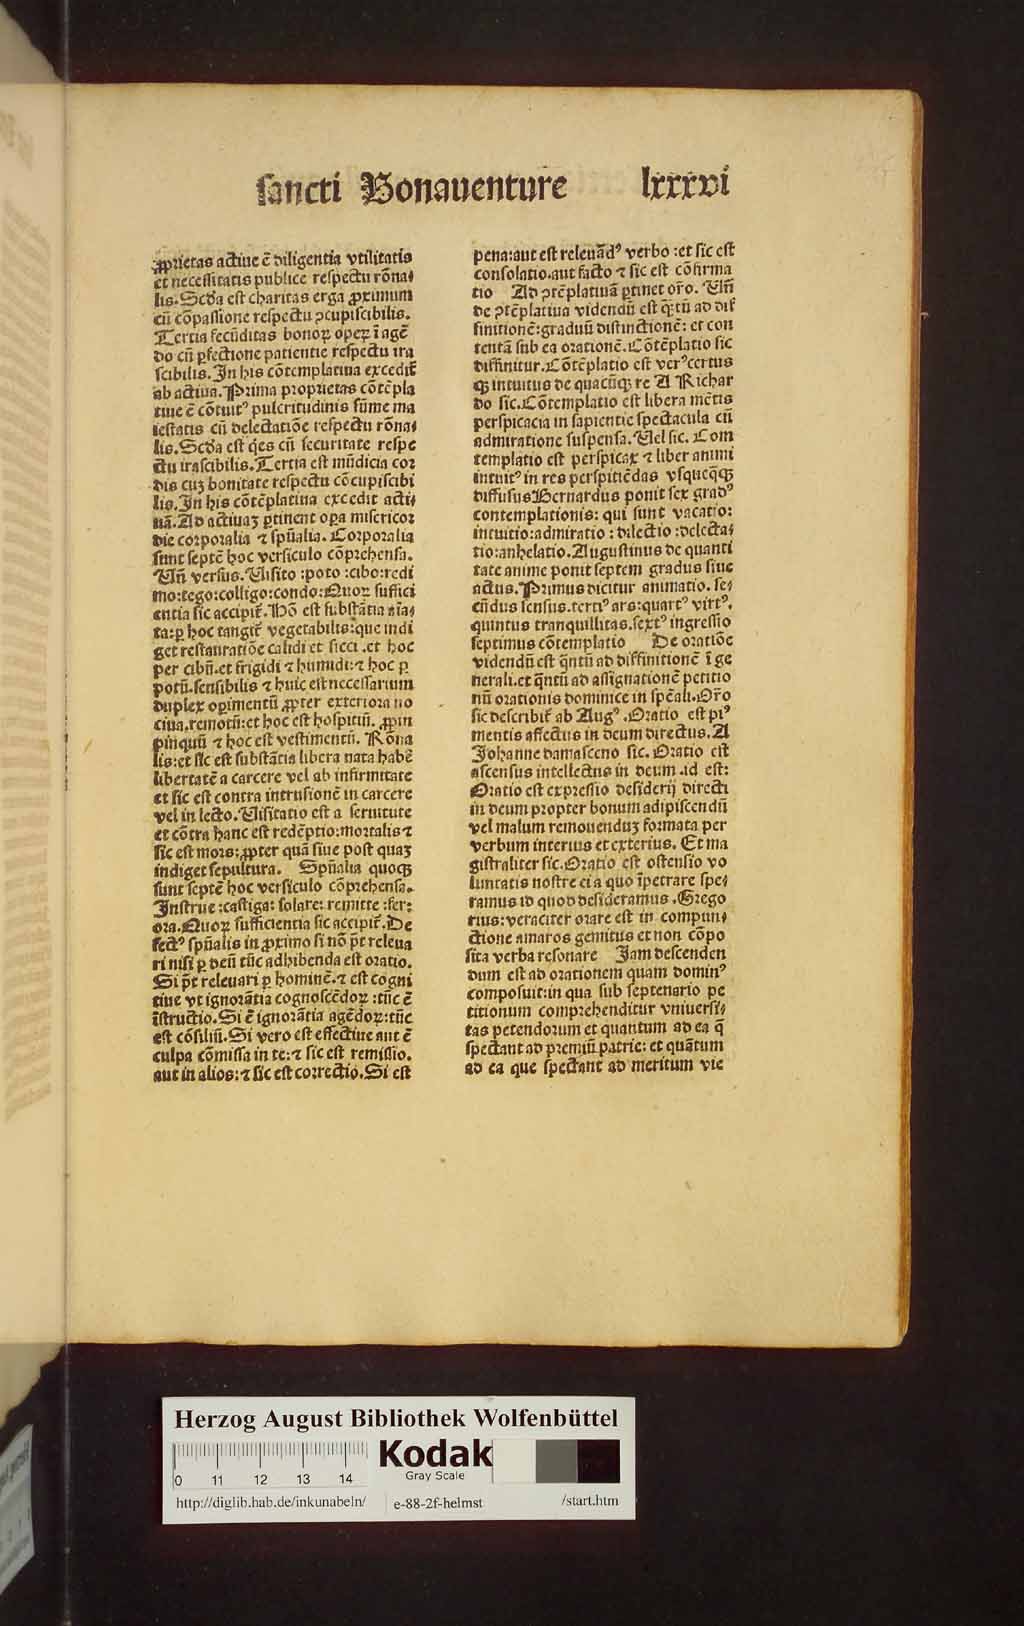 sancti Bonauenture lxxxvi
ꝓprietas actiue ē diligentia vtilitatis
et necessitatis publice respectu rōna⸗
lis. Scďa est charitas erga ꝓximum
cū cōpassione respectu ꝯcupiscibilis.
Tertia fecūditas bonoꝝ opeꝝ ī agē
do cū ꝑfectione patientie respectu ira
scibilis. In his cōtemplatiua excedit̄
ab actiua. Prima proprietas cōtēpla
tiue ē cōtuitꝰ pulcritudinis sūme ma
iestatis cū delectatiōe respectu rōna⸗
lis. Scďa est q̇es cū securitate respe
ctu irascibilis. Tertia est mūdicia cor
dis cuʒ bonitate respectu cōcupiscibi
lis. In his cōtēplatiua excedit acti⸗
uā. Ad actiuaʒ ꝑtinent oꝑa misericor
die corporalia ⁊ spūalia. Corporalia
sunt septē hoc versiculo cōprehensa.
Vn̄ versus. Uisito :poto :cibo:redi
mo:tego:colligo:condo:Quoꝝ suffici
entia sic accipit̄. Hō est substātia aīa⸗
ta:ꝑ hoc tangit̄ vegetabilis:que indi
get restauratiōe calidi et sicci .et hoc
per cibū.et frigidi ⁊ humidi:⁊ hoc ꝑ
potū.sensibilis ⁊ huic est necessarium
duplex oꝑimentū ꝓpter exteriora no
ciua.remotū:et hoc est hospitiū. ꝓpin
pinquū ⁊ hoc est vestimentū. Rōna
lis:et sic est substātia libera nata habē
libertatē a carcere vel ab infirmitate
et sic est contra intrusionē in carcere
vel in lecto. Uisitatio est a seruitute
et cōtra hanc est redēptio:mortalis ⁊
sic est mors:ꝓpter quā siue post quaʒ
indiget sepultura. Spūalia quoqꝫ
sunt septē hoc versiculo cōprehensa.
Instrue :castiga: solare: remitte :fer:
ora. Quoꝝ sufficientia sic accipit̄. De
fectꝰ spūalis in ꝓximo si nō pōt releua
ri nisi ꝑ deū tūc adhibenda est oratio.
Si pōt releuari ꝑ hominē.⁊ est cogni
tiue vt ignorātia cognoscēdoꝝ :tūc ē
īstructio. Si ē ignorātia agēdoꝝ:tūc
est cōsiliū. Si vero est effectiue aut ē
culpa cōmissa in te:⁊ sic est remissio.
aut in alios:⁊ sic est correctio. Si est
pena:aut est releuādꝰ verbo :et sic est
consolatio.aut facto ⁊ sic est cōfirma
tio Ad ꝯtēplatiuā ꝑtinet or̄o. Vn̄
de ꝯtēplatiua videndū est q̄ꝫtū ad dif
finitionē:graduū distinctionē: et con
tentā sub ea orationē. Cōtēplatio sic
diffinitur. Cōtēplatio est verꝰ certus
qꝫ intuitus de quacūqꝫ re A Richar
do sic. Cōtemplatio est libera mētis
perspicacia in sapientie spectacula cū
admiratione suspensa. Uel sic. Com
templatio est perspicax ⁊ liber animi
intuitꝰ in res perspitiēdas vsqueqꝫ
diffusus Bernardus ponit sex gradꝰ
contemplationis: qui sunt vacatio:
intuitio:admiratio : dilectio :delecta⸗
tio:anhelatio. Augustinus de quanti
tate anime ponit septem gradus siue
actus. Primus dicitur animatio. se⸗
cūdus sensus.tertiꝰ ars:quartꝰ virtꝰ.
quintus tranquillitas.sextꝰ ingressio
septimus cōtemplatio De oratiōe
videndū est q̄ntū ad diffinitionē ī ge
nerali.et q̄ntū ad assignationē petitio
nū orationis dominice in spēali. Or̄o
sic describit̄ ab Augꝰ .Oratio est piꝰ
mentis affectus in deum directus. A
Johanne damasceno sic. Oratio est
ascensus intellectus in deum .id est:
Oratio est expressio desiderij directi
in deum propter bonum adipiscendū
vel malum remouenduʒ formata per
verbum interius et exterius. Et ma
gistraliter sic. Oratio est ostensio vo
luntatis nostre ei a quo īpetrare spe⸗
ramus id quod desideramus. Grego
rius:veraciter orare est in compun⸗
ctione amaros gemitus et non cōpo
sita verba resonare Jam descenden
dum est ad orationem quam dominꝰ
composuit:in qua sub septenario pe
titionum comprehenditur vniuersi⸗
tas petendorum et quantum ad ea q̄
spectant ad premiū patrie: et quātum
ad ea que spectant ad meritum vie
Herzog August Bibliothek Wolfenbüttel
0 11 12 13 14
Kodak
Gray Scale
http://diglib.hab.de/inkunabeln/ e-88-2f-helmst /start.htm